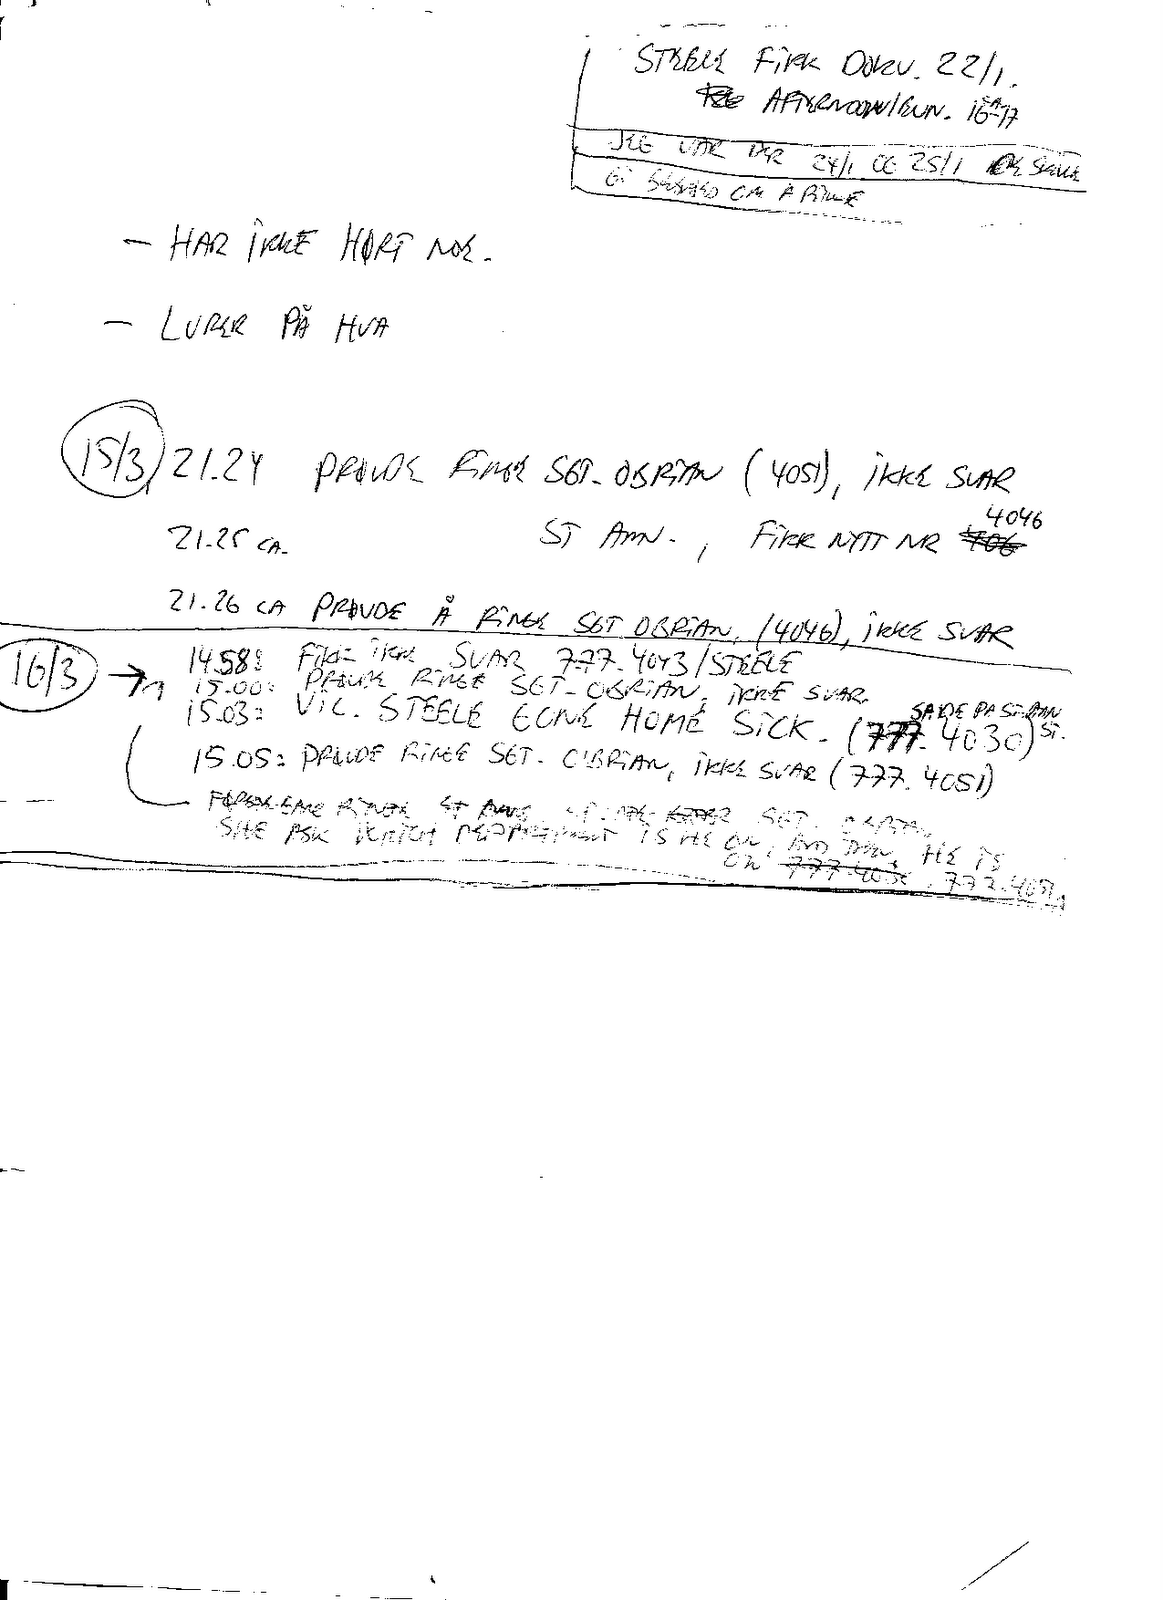 STEELE FIKK DOKU. 22/1.
AFTERNOON/EVN. 16-17
JEG VAR DER 24/1 OG 25/1
OM Å RINGE
– HAR IKKE HØRT NOE.
– LURER PÅ HVA
15/3 21.24 PRØVDE RINGE SGT. OBRIAN (4051), IKKE SVAR
4046
21.25 CA. ST ANN. , FIKK NYTT NR
21.26 CA PRØVDE Å RINGE SGT OBRIAN, (4046), IKKE SVAR
16/3 → 14.58: FIKK IKKE SVAR 777.4043/STEELE
15.00: PRØVDE RINGE SGT. OBRIAN, IKKE SVAR.
SAIDE PA ST. ANN ST.
15.03: VIC. STEELE GONE HOME SICK. (777.4030)
15.05: PRØVDE RINGE SGT. O'BRIAN, IKKE SVAR (777.4051)
RINGER ST SGT.
SHE ASK WHICH DEPARTMENT IS HE ON, AND THEN HE IS
ON 777.4056. 777.4051